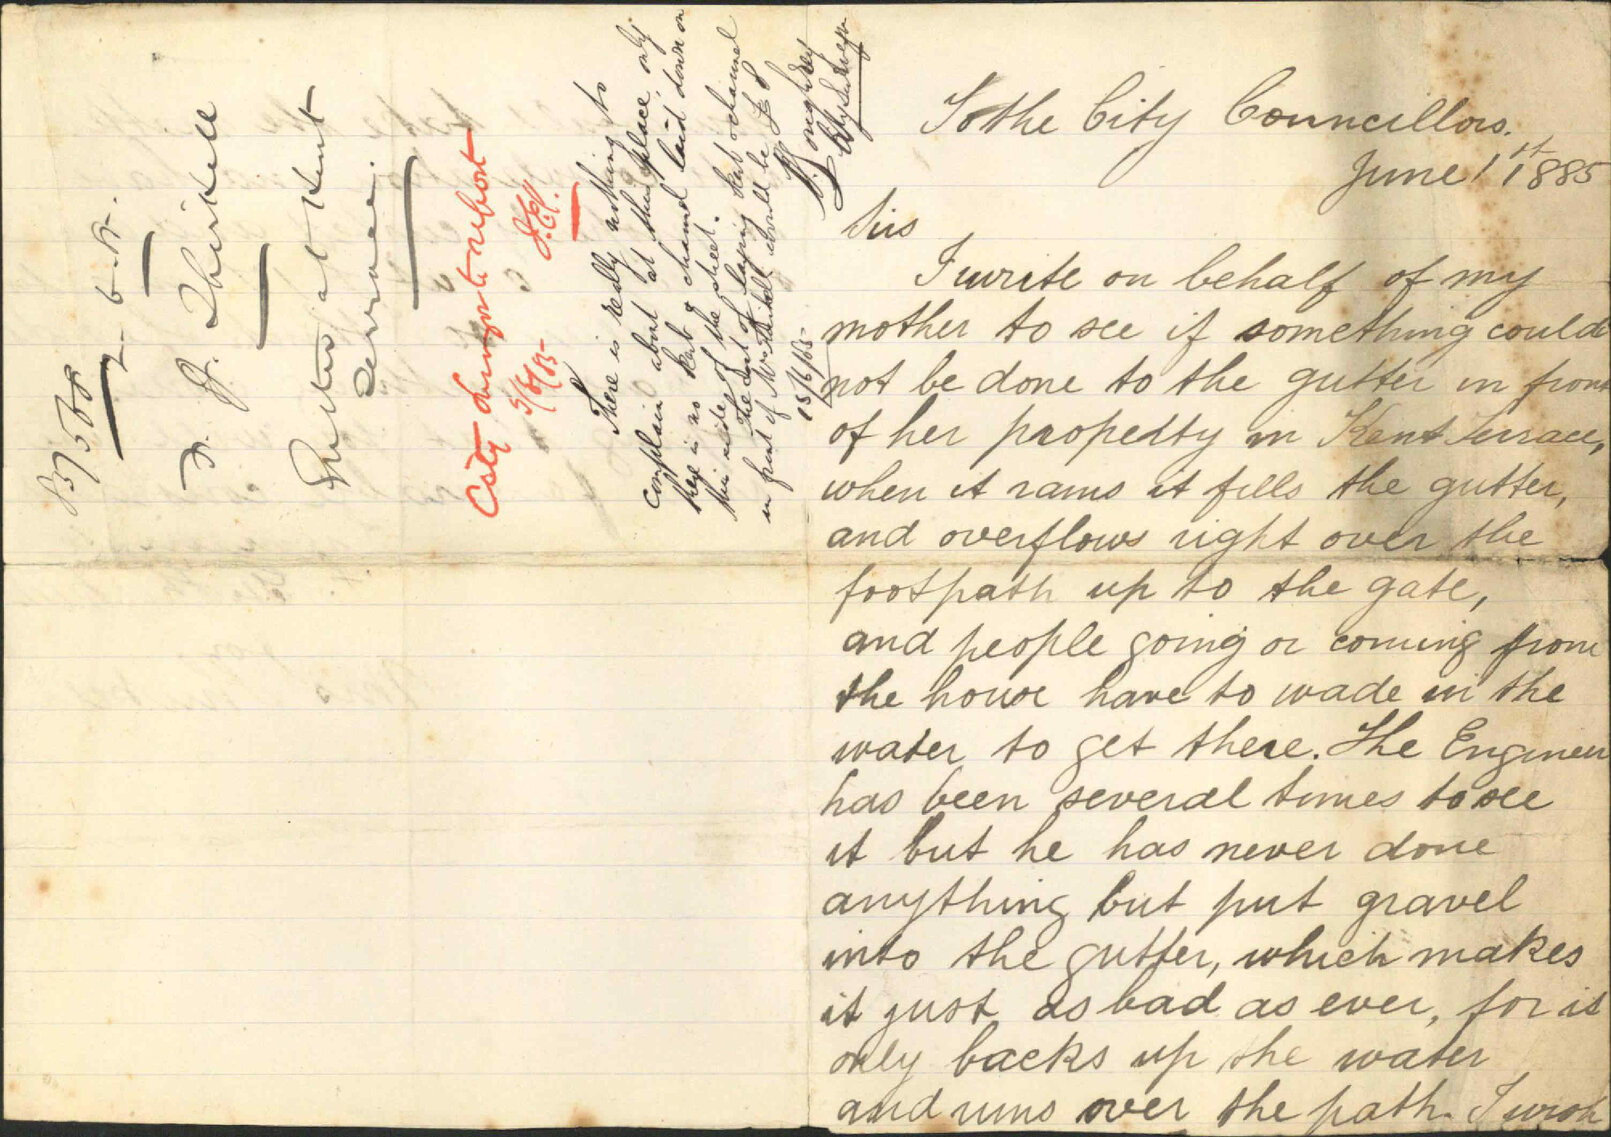 To the City Councillors.
June 1st 1885
Sirs
I write on behalf of my
mother to see if something could
not be done to the gutter in front
of her property in Kent Terrace,
when it rains it fills the gutter,
and overflows right over the
footpath up to the gate,
and people going or coming from
the house have to wade in the
water to get there. The Engineer
has been several times to see
it but he has never done
anything but put gravel
into the gutter, which makes
it just as bad as ever, for it
only backs up the water
and runs over the path. I wish
85/568
2.6.85
Gutter at Kent
Terrace.
City Surveyor to report
3/6/85
There is really nothing to
complain about at this place, only
there is no kerb & channel laid down on
this side of the street.
The cost of laying kerb & channel
in front of Mrs Thirkell would be £
15/6/85
City Surveyor